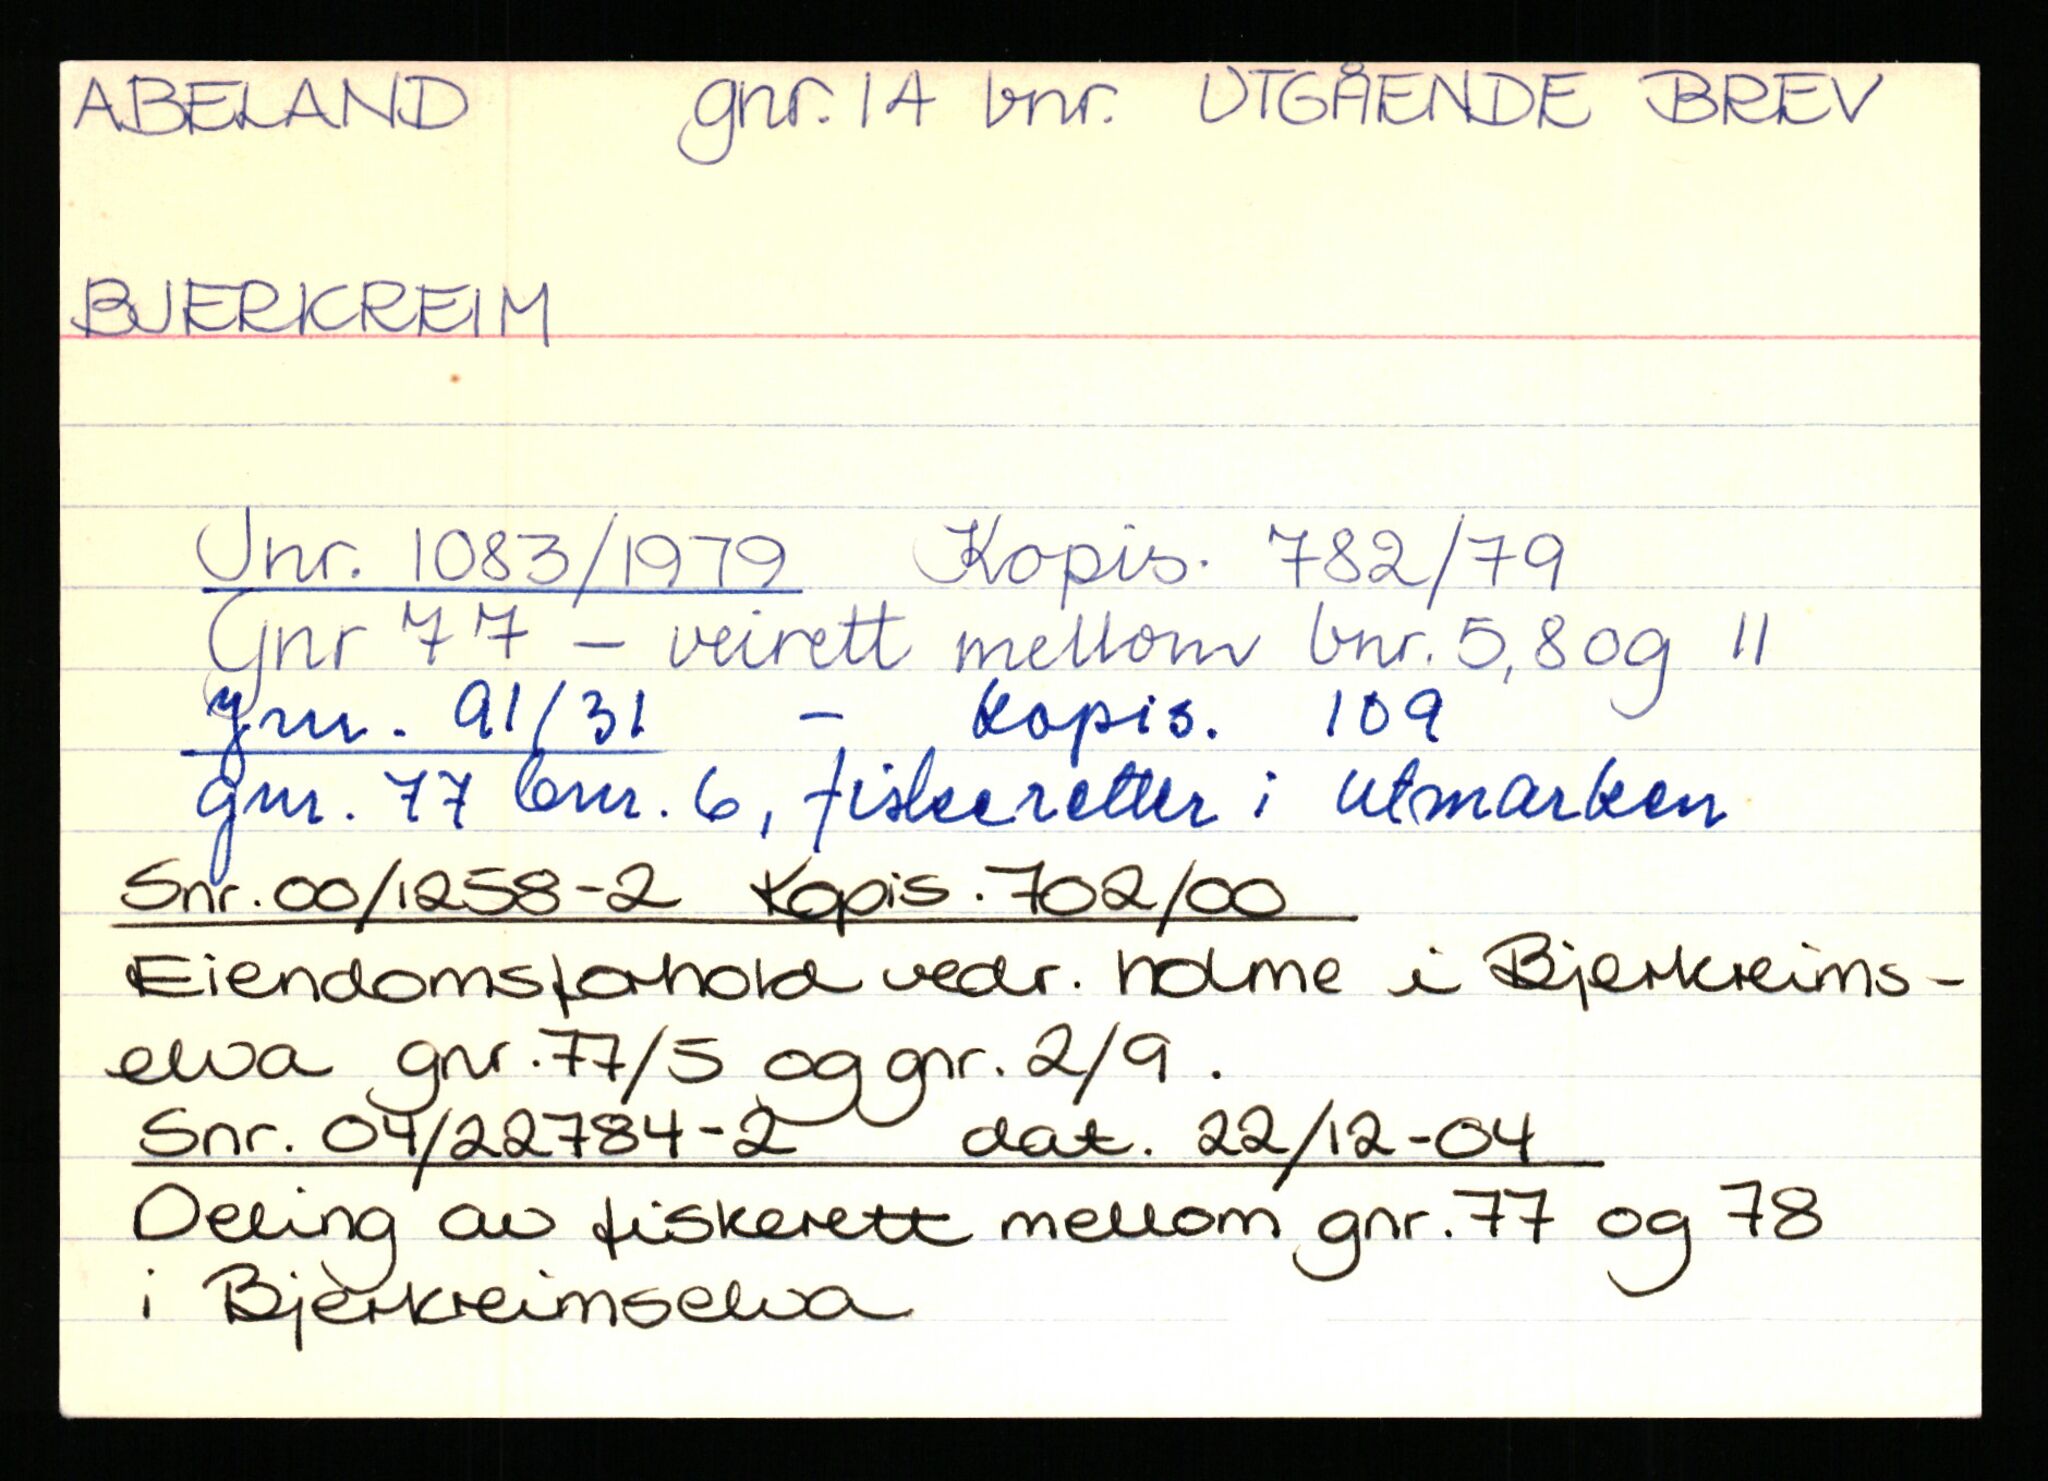 ABELAND gnr. 14 bnr. UTGÅENDE BREV
BJERKREIM
Unr. 1083/1979 Kopis. 782/79
Gnr 77 – veirett mellom bnr. 5, 8 og 11
gnr. 91/31 – kopis. 109
gnr. 77 bnr. 6, fiskeretter i utmarken
Snr. 00/1258-2 Kopis. 702/00
Eiendomsforhold vedr. holme i Bjerkreims-
elva gnr. 77/5 og gnr. 2/9.
Snr. 04/22784-2 dat. 22/12-04
Deling av fiskerett mellom gnr. 77 og 78
i Bjerkreimselva